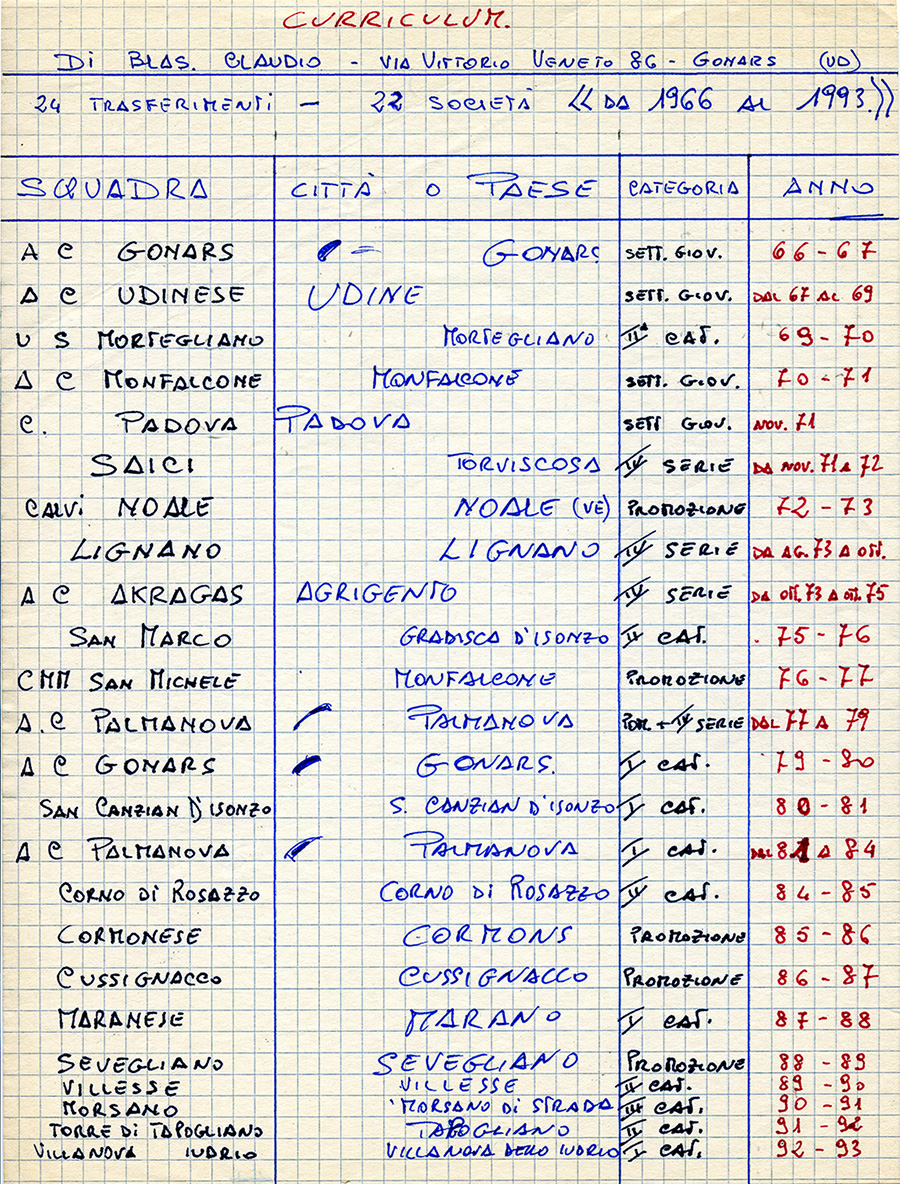 CURRICULUM.
Di BLAS. CLAUDIO - VIA VITTORIO VENETO 86 - GONARS (UD)
24 TRASFERIMENTI - 22 SOCIETÀ << DA 1966 AL 1993.>>
SQUADRA CITTÀ O PAESE CATEGORIA ANNO
A C GONARS = GONARS SETT. GIOV. 66-67
A C UDINESE UDINE SETT. GIOV. DAL 67 AL 69
U S MORTEGLIANO MORTEGLIANO IIª CAT. 69-70
A C MONFALCONE MONFALCONE SETT. GIOV. 70-71
C. PADOVA PADOVA SETT GIOV. NOV. 71
SAICI TORVISCOSA IV SERIE DA NOV. 71 A 72
CALVI NOALE NOALE (VE) PROMOZIONE 72-73
LIGNANO LIGNANO IV SERIE DA AG. 73 A OTT.
A C AKRAGAS AGRIGENTO IV SERIE DA OTT. 73 A OTT. 75
SAN MARCO GRADISCA D'ISONZO II CAT. 75-76
CMM SAN MICHELE MONFALCONE PROMOZIONE 76-77
A.C PALMANOVA PALMANOVA + IV SERIE DAL 77 A 79
A C GONARS GONARS. I CAT. 79-80
SAN CANZIAN D'ISONZO S. CANZIAN D'ISONZO I CAT. 80-81
A C PALMANOVA PALMANOVA I CAT. DAL 81 A 84
CORNO Di ROSAZZO CORNO Di ROSAZZO CAT. 84-85
CORMONESE CORMONS PROMOZIONE 85-86
CUSSIGNACCO CUSSIGNACCO PROMOZIONE 86-87
MARANESE MARANO I CAT. 87-88
SEVEGLIANO SEVEGLIANO PROMOZIONE 88-89
VILLESSE VILLESSE II CAT. 89-90
MORSANO MORSANO Di STRADA III CAT. 90-91
TORRE DI TAPOGLIANO TAPOGLIANO II CAT. 91-92
VILLANOVA IUDRIO VILLANOVA DELLO IUDRIO I CAT. 92-93